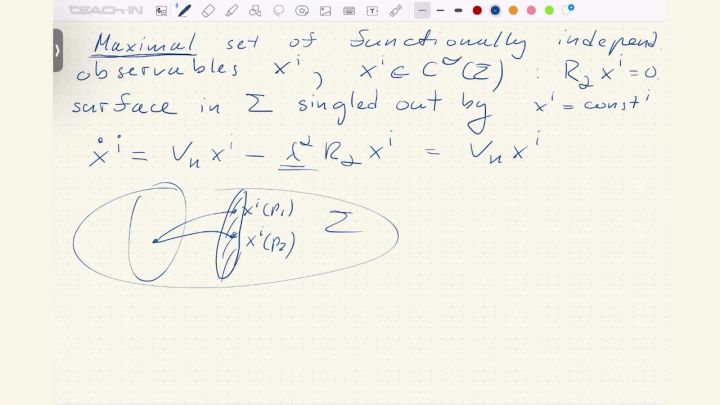 TEACH-IN
Maximal set of functionally independ.
observables xⁱ, xⁱ ∈ C^∞(Σ) : R₂ xⁱ = 0.
surface in Σ singled out by xⁱ = constⁱ
ẋⁱ = Vₙ xⁱ − λ² R₂ xⁱ = Vₙ xⁱ
xⁱ(p₁)
Σ
xⁱ(p₂)